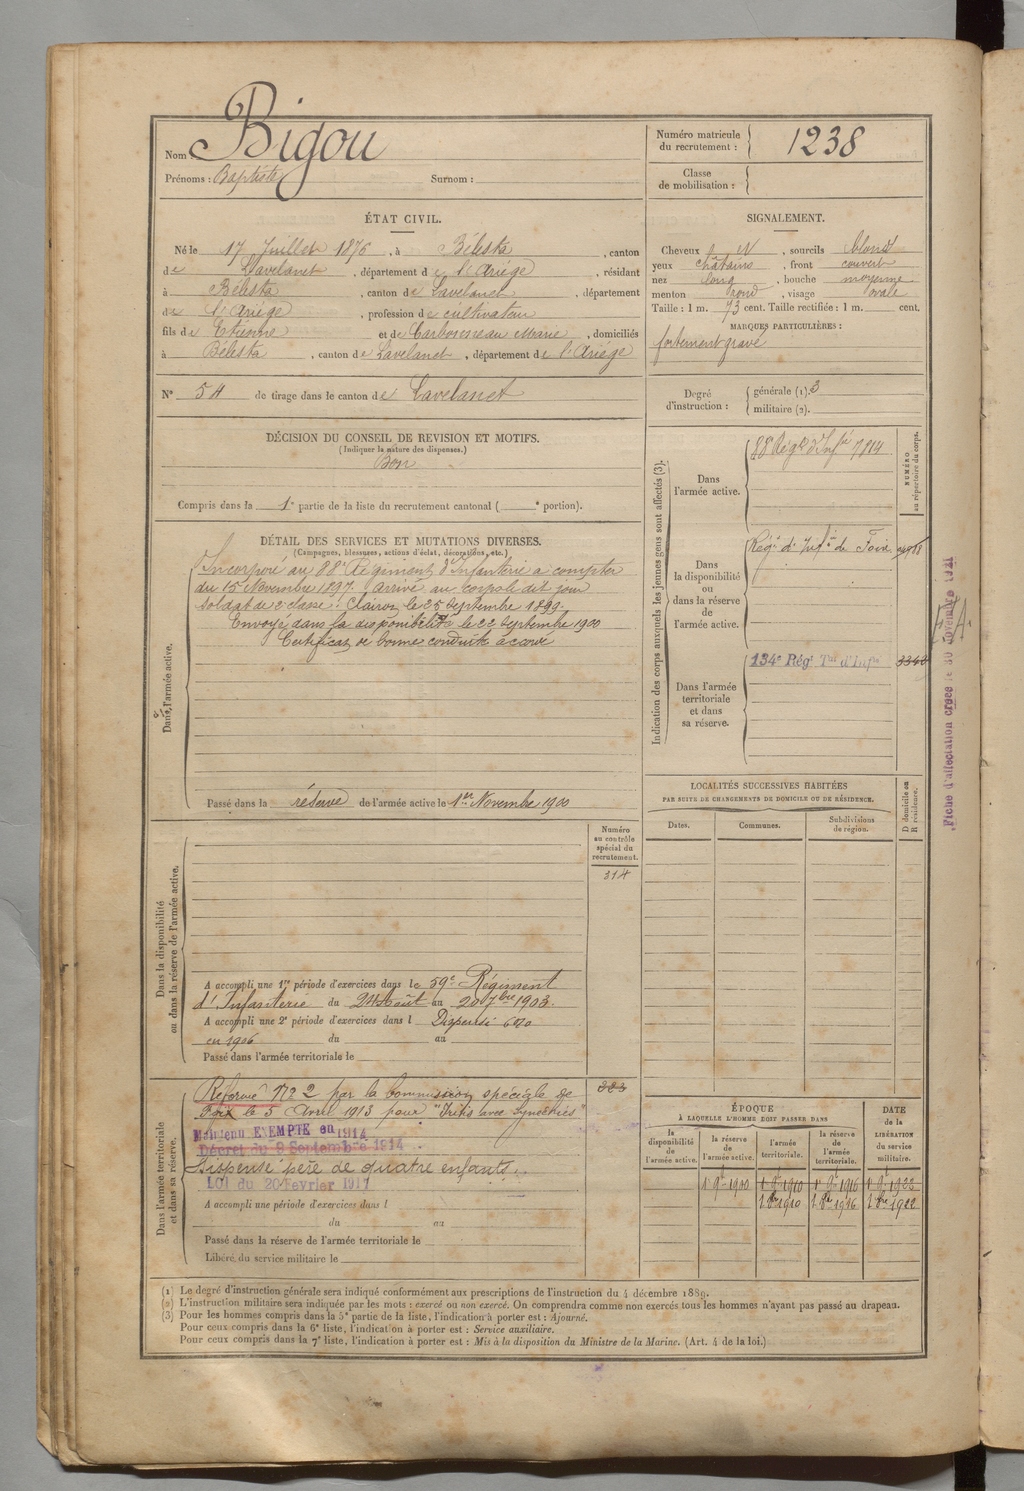 Nom : Bigou
Prénoms : Baptiste Surnom :
Numéro matricule
du recrutement : 1238
Classe
de mobilisation :
ÉTAT CIVIL.
Né le 17 Juillet 1876, à Bélesta, canton
de Lavelanet, département de l'Ariége, résidant
à Bélesta, canton de Lavelanet, département
de l'Ariége, profession de cultivateur
fils de Etienne et de Marie, domiciliés
à Bélesta, canton de Lavelanet, département de l'Ariége
N° 54 de tirage dans le canton de Lavelanet
SIGNALEMENT.
Cheveux , sourcils blond
yeux châtains, front couvert
nez long, bouche moyenne
menton rond, visage ovale
Taille : 1 m. 73 cent. Taille rectifiée : 1 m. cent.
MARQUES PARTICULIÈRES :
fortement gravé
Degré
d'instruction :
générale (1). 3
militaire (2).
DÉCISION DU CONSEIL DE REVISION ET MOTIFS.
(Indiquer la nature des dispenses.)
Bon
Compris dans la 1e partie de la liste du recrutement cantonal ( e portion).
DÉTAIL DES SERVICES ET MUTATIONS DIVERSES.
(Campagnes, blessures, actions d'éclat, décorations, etc.)
Dans l'armée active.
Incorporé au 88e Régiment d'Infanterie a compter
du 15 Novembre 1897. Arrivé au corps le dit jour
soldat de 2e classe. Clairon le 25 Septembre 1899.
Envoyé dans la disponibilité le 22 Septembre 1900
Certificat de bonne conduite accordé
Passé dans la réserve de l'armée active le 1er Novembre 1900
Indication des corps auxquels les jeunes gens sont affectés (3).
NUMÉRO
au répertoire du corps.
Dans
l'armée active.
88e Régt d'Infie 7814
Dans
la disponibilité
ou
dans la réserve
de
l'armée active.
Régt d'Infie de Foix
Dans l'armée
territoriale
et dans
sa réserve.
134e Régt Tal d'Infie
Fiche d'affectation créée le 30 novembre
LOCALITÉS SUCCESSIVES HABITÉES
PAR SUITE DE CHANGEMENTS DE DOMICILE OU DE RÉSIDENCE.
Dates. Communes. Subdivisions
de région.
D domicile ou
R résidence.
Dans la disponibilité
ou dans la réserve de l'armée active.
Numéro
au contrôle
spécial du
recrutement.
314
A accompli une 1re période d'exercices dans le 59e Régiment
d'Infanterie du 24 Août au 20 7bre 1903.
A accompli une 2e période d'exercices dans l Dispensé
en 1906 du au
Passé dans l'armée territoriale le
Dans l'armée territoriale
et dans sa réserve.
323
Réformé N° 2 par la Commission spéciale de
Foix le 5 Avril 1913 pour "Iritis avec Synéchies"
Maintenu EXEMPTÉ en 1914
Décret du 9 Septembre 1914
Dispensé père de quatre enfants.
Loi du 20 Fevrier 1917
A accompli une période d'exercices dans l
du au
Passé dans la réserve de l'armée territoriale le
Libéré du service militaire le
ÉPOQUE
À LAQUELLE L'HOMME DOIT PASSER DANS
DATE
de la
LIBÉRATION
du service
militaire.
la
disponibilité
de
l'armée active.
la réserve
de
l'armée active.
l'armée
territoriale.
la réserve
de
l'armée
territoriale.
1er 9e 1900 1er 9e 1910 1er 9e 1916 1er 9e 1922
1910 1916 1922
(1) Le degré d'instruction générale sera indiqué conformément aux prescriptions de l'instruction du 4 décembre 1889.
(2) L'instruction militaire sera indiquée par les mots : exercé ou non exercé. On comprendra comme non exercés tous les hommes n'ayant pas passé au drapeau.
(3) Pour les hommes compris dans la 5e partie de la liste, l'indication à porter est : Ajourné.
Pour ceux compris dans la 6e liste, l'indication à porter est : Service auxiliaire.
Pour ceux compris dans la 7e liste, l'indication à porter est : Mis à la disposition du Ministre de la Marine. (Art. 4 de la loi.)